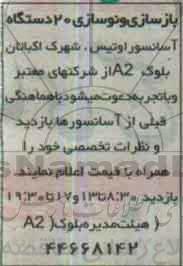 بازسازی ونوسازی ۲۰ دستگاه
آسانسور اوتیس ، شهرک اکباتان
بلوک A2 از شرکتهای معتبر
وباتجربه دعوت میشود باهماهنگی
قبلی از آسانسورها بازدید
و نظرات تخصصی خود را
همراه با قیمت اعلام نمایند.
بازدید ۸:۳۰ تا ۱۳ و ۱۷ تا ۱۹:۳۰
( هیئت مدیره بلوک A2 )
۴۴۶۶۸۱۴۲